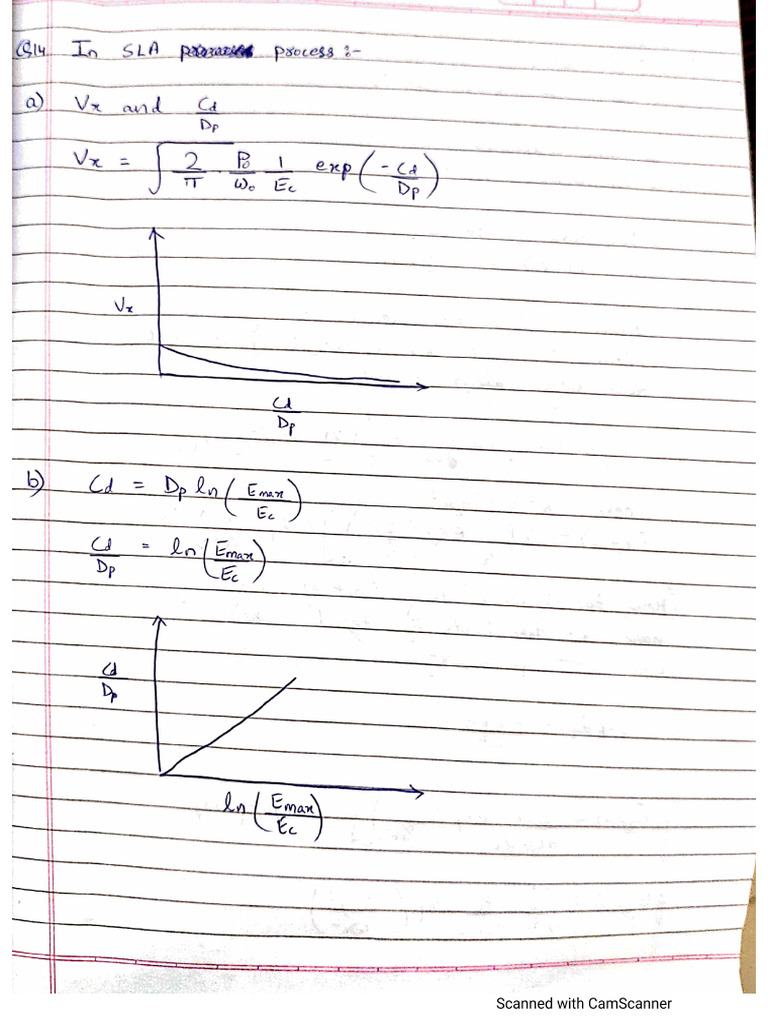 Q14 In SLA process :-
a) Vx and Cd/Dp
Vx = √(2/π) · P₀/ω₀ 1/Ec exp(-Cd/Dp)
Vx
Cd/Dp
b) Cd = Dp ln(Emax/Ec)
Cd/Dp = ln(Emax/Ec)
Cd/Dp
ln(Emax/Ec)
Scanned with CamScanner